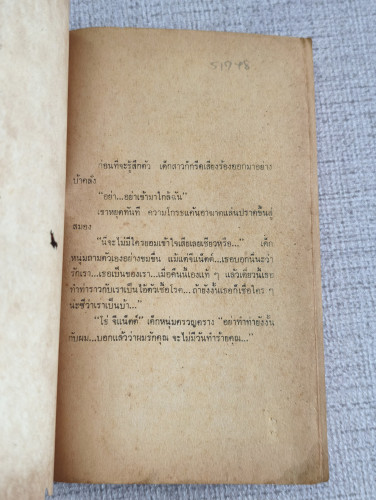 S1748
ก่อนที่จะรู้สึกตัว เด็กสาวก็กรีดเสียงร้องออกมาอย่าง
บ้าคลั่ง
“อย่า...อย่าเข้ามาใกล้ฉัน”
เขาหยุดทันที ความโกรธแค้นอาฆาตแล่นปราดขึ้นสู่
สมอง
“นี่จะไม่มีใครยอมเข้าใจเสียเลยเชียวหรือ...” เด็ก
หนุ่มถามตัวเองอย่างขมขื่น แม้แต่จีแน็ตต์...เธอบอกนี่นะว่า
รักเรา...เธอเป็นของเรา...เมื่อคืนนี้เองแท้ ๆ แล้วเดี๋ยวนี้เธอ
ทำท่าราวกับเราเป็นไอ้ตัวเชื้อโรค...ถ้ายังงั้นเธอก็เชื่อใคร ๆ
น่ะซีว่าเราเป็นบ้า...”
“โธ่ จีแน็ตต์” เด็กหนุ่มครวญคราง “อย่าทำท่ายังงั้น
กับผม...บอกแล้วว่าผมรักคุณ จะไม่มีวันทำร้ายคุณ...”